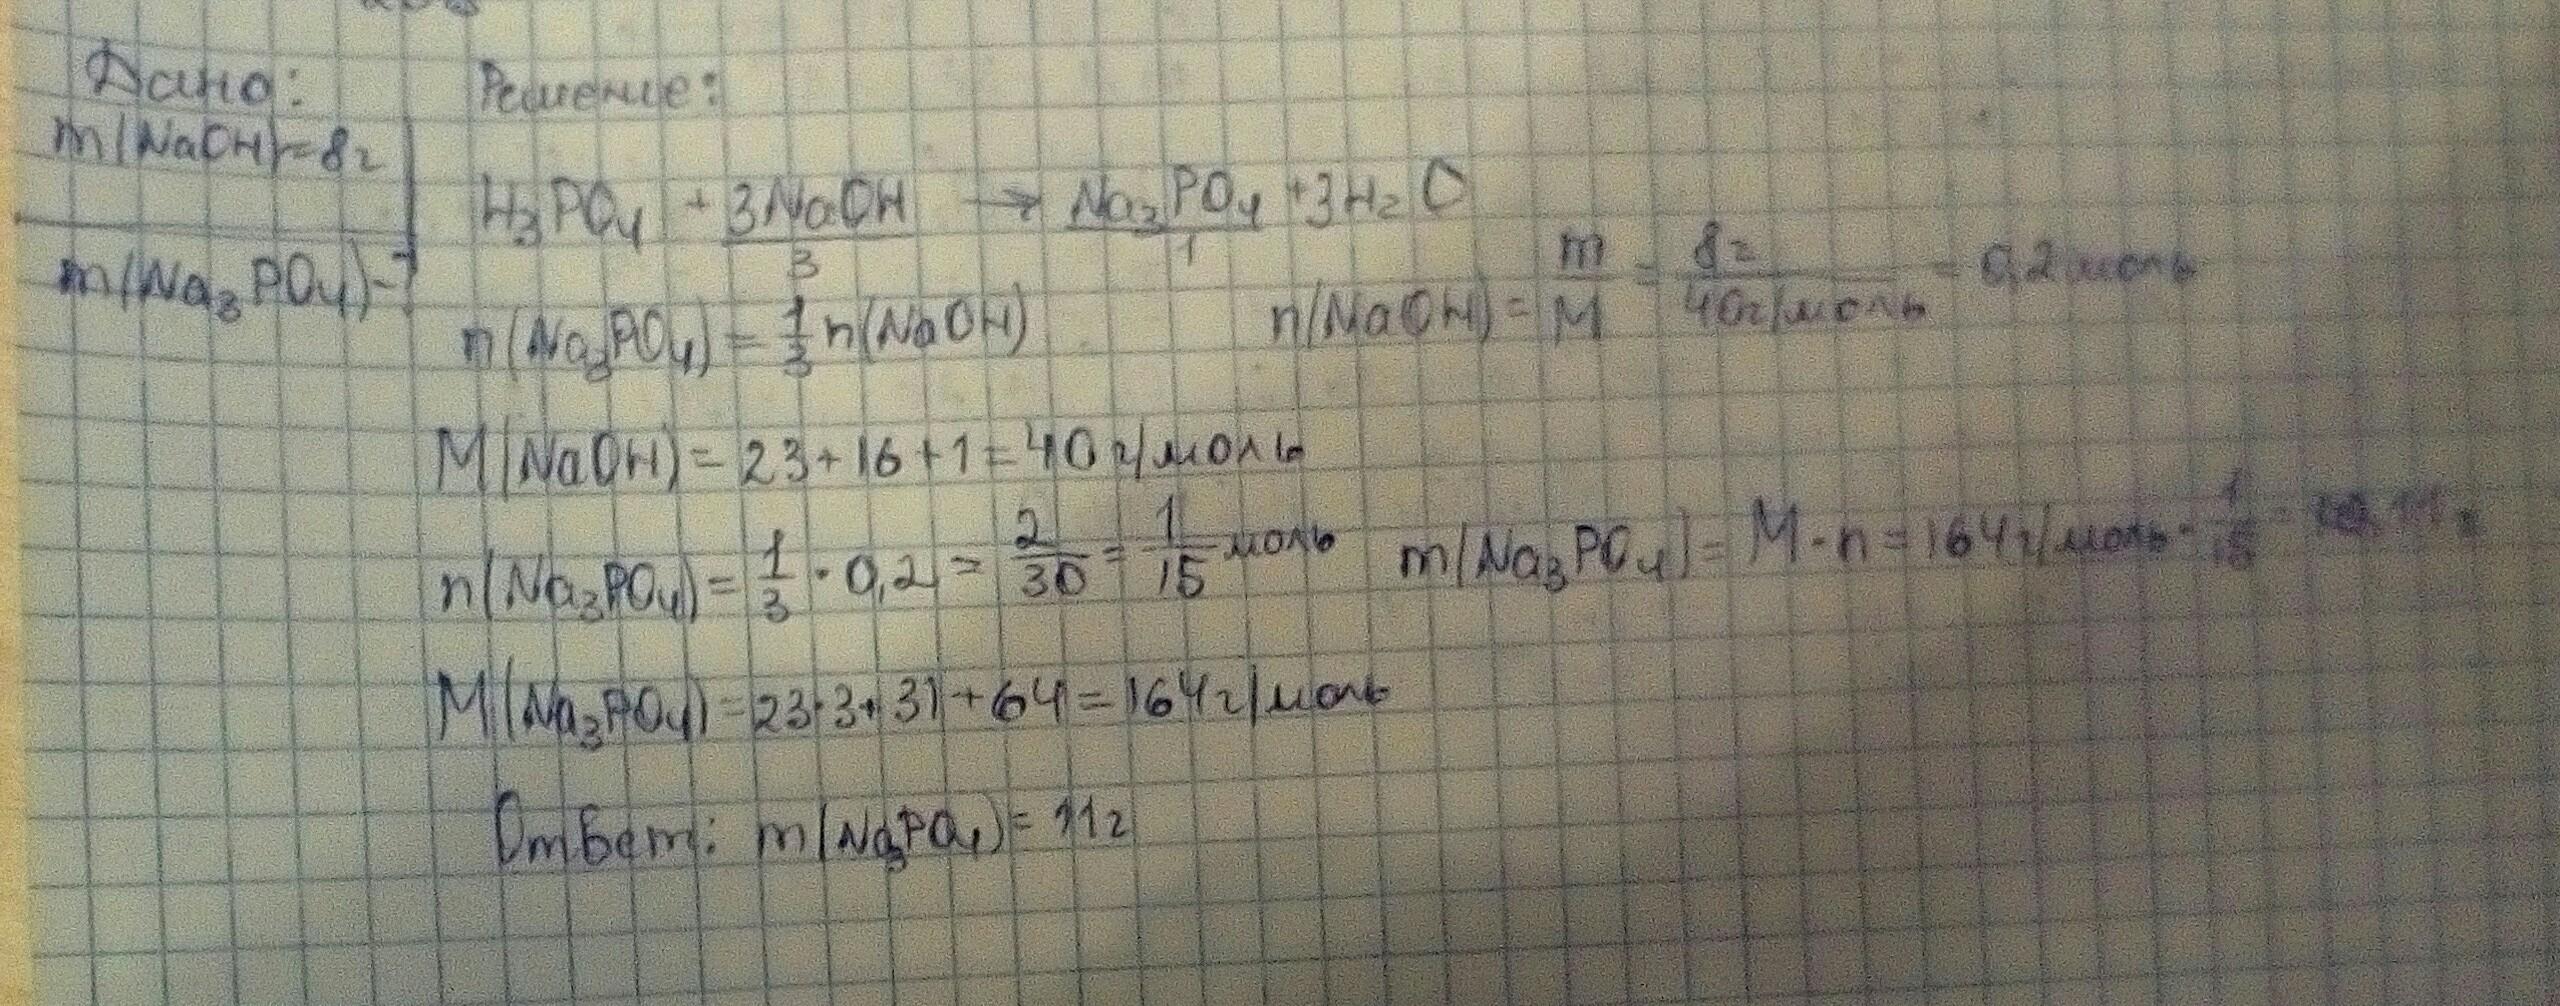 Дано:
m(NaOH)=8г
m(Na₃PO₄)-?
Решение:
H₃PO₄ + 3NaOH → Na₃PO₄ + 3H₂O
3 1
n(Na₃PO₄) = 1/3 n(NaOH) n(NaOH) = m/M = 8г/40г/моль = 0,2 моль
M(NaOH) = 23+16+1 = 40 г/моль
n(Na₃PO₄) = 1/3 · 0,2 = 2/30 = 1/15 моль m(Na₃PO₄) = M·n = 164 г/моль · 1/15 =
M(Na₃PO₄) = 23·3+31+64 = 164 г/моль
Ответ: m(Na₃PO₄) = 11г